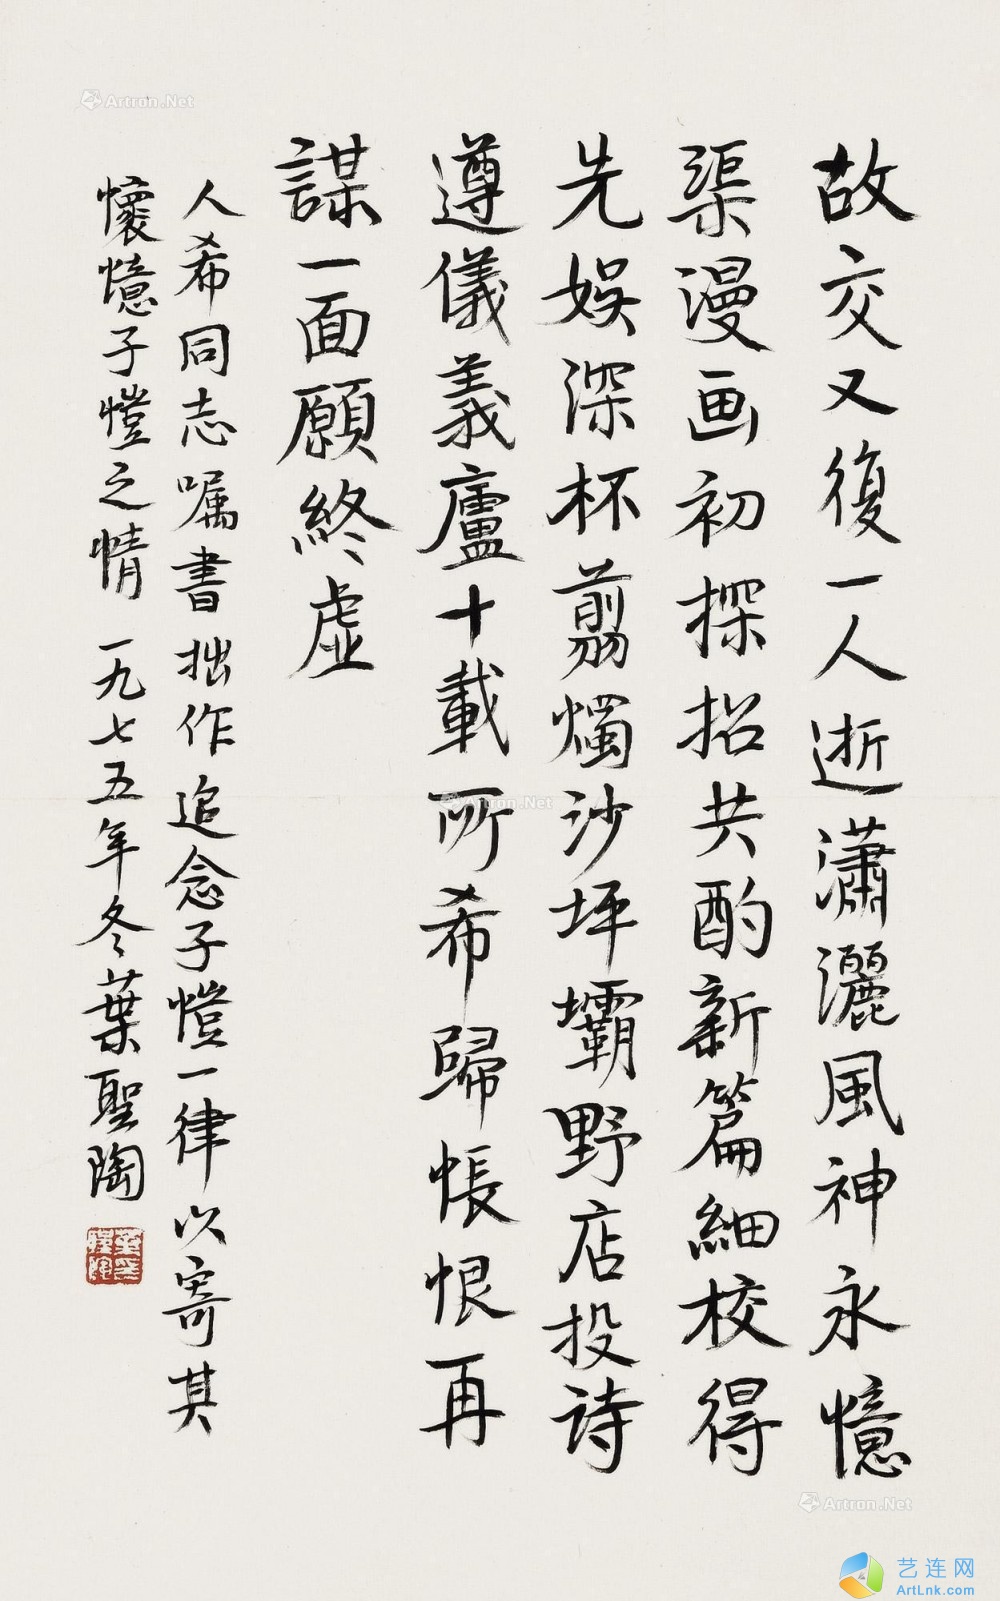 故交又復一人逝瀟灑風神永憶
渠漫画初探招共酌新篇細校得
先娛深杯剪燭沙坪壩野店投詩
遵儀義廬十載所希歸悵恨再
謀一面願終虛
人希同志嘱書拙作追念子愷一律以寄其
懷憶子愷之情 一九七五年冬葉聖陶
Artron.Net
Artron.Net
Artron.Net
艺连网
ArtLnk.com